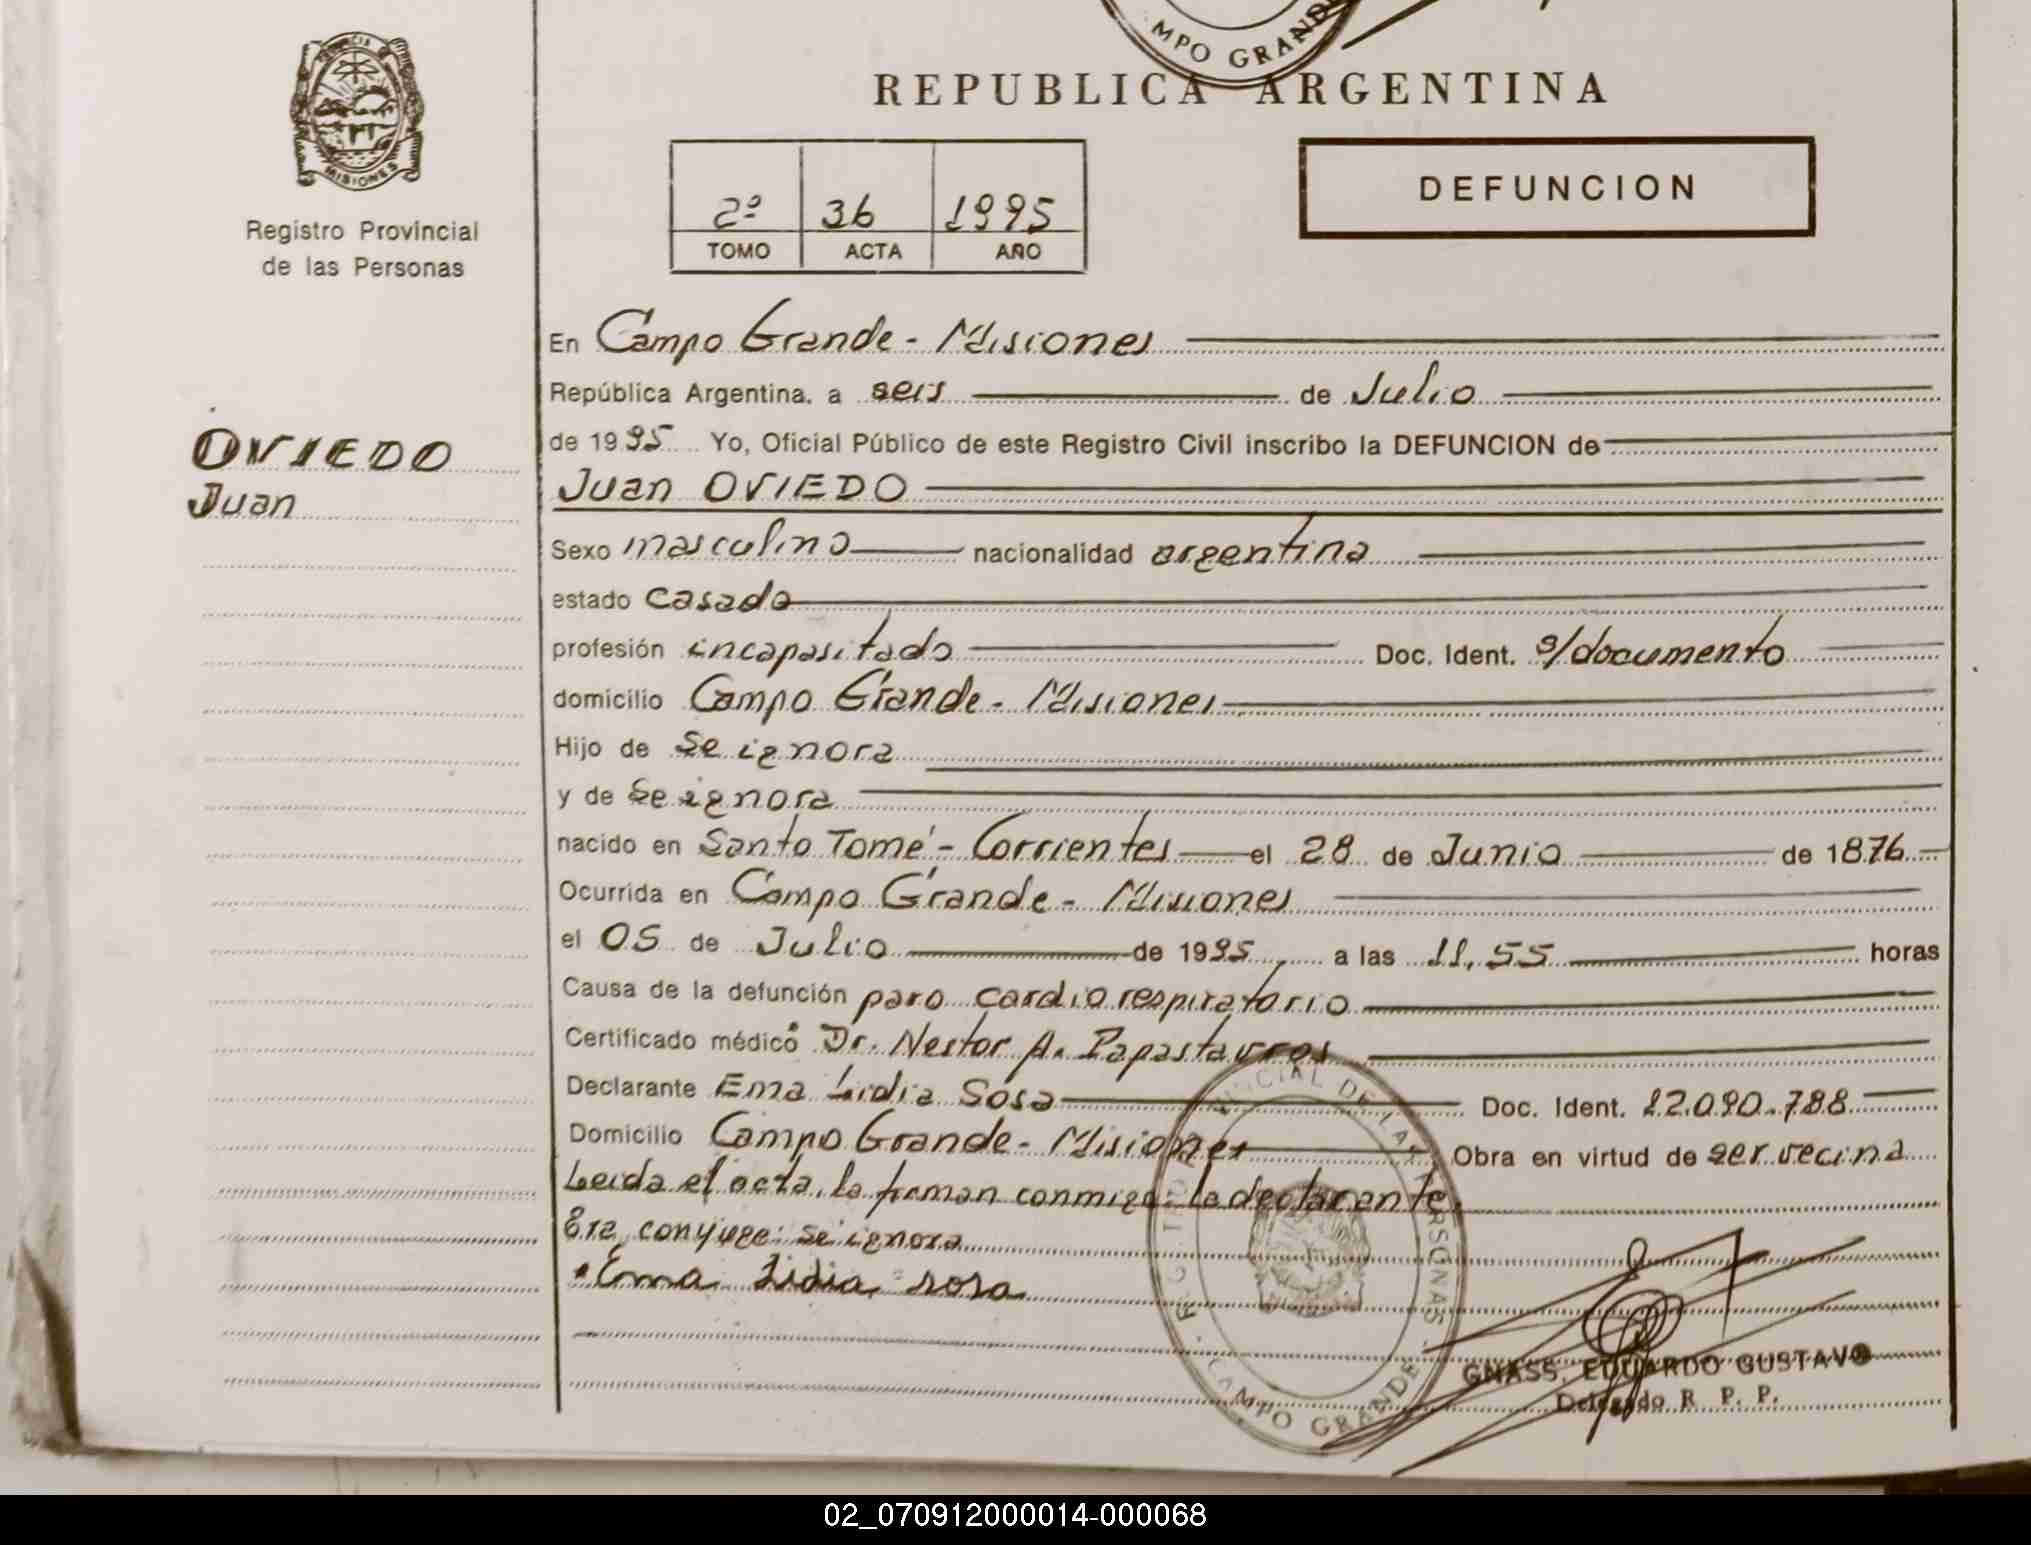 MPO GRAND
REPUBLICA ARGENTINA
PROVINCIA DE
MISIONES
Registro Provincial
de las Personas
2º 36 1995
TOMO ACTA AÑO
DEFUNCION
OVIEDO
Juan
En Campo Grande - Misiones
República Argentina. a seis de Julio
de 1995 Yo, Oficial Público de este Registro Civil inscribo la DEFUNCION de
Juan OVIEDO
Sexo masculino nacionalidad argentina
estado casado
profesión incapasitado Doc. Ident. s/documento
domicilio Campo Grande - Misiones
Hijo de se ignora
y de se ignora
nacido en Santo Tomé - Corrientes el 28 de Junio de 1876
Ocurrida en Campo Grande - Misiones
el 05 de Julio de 1995 a las 11,55 horas
Causa de la defunción paro cardiorespiratorio
Certificado médico Dr. Nestor A. Papastavros
Declarante Ema Lidia Sosa Doc. Ident. 12.090.788
Domicilio Campo Grande - Misiones Obra en virtud de ser vecina
Leida el acta, la firman conmigo: la declarante.
Era conyuge: se ignora
Ema Lidia sosa
REGISTRO PROVINCIAL DE LAS PERSONAS
CAMPO GRANDE
GNASS, EDUARDO GUSTAVO
Delegado R. P. P.
02_070912000014-000068